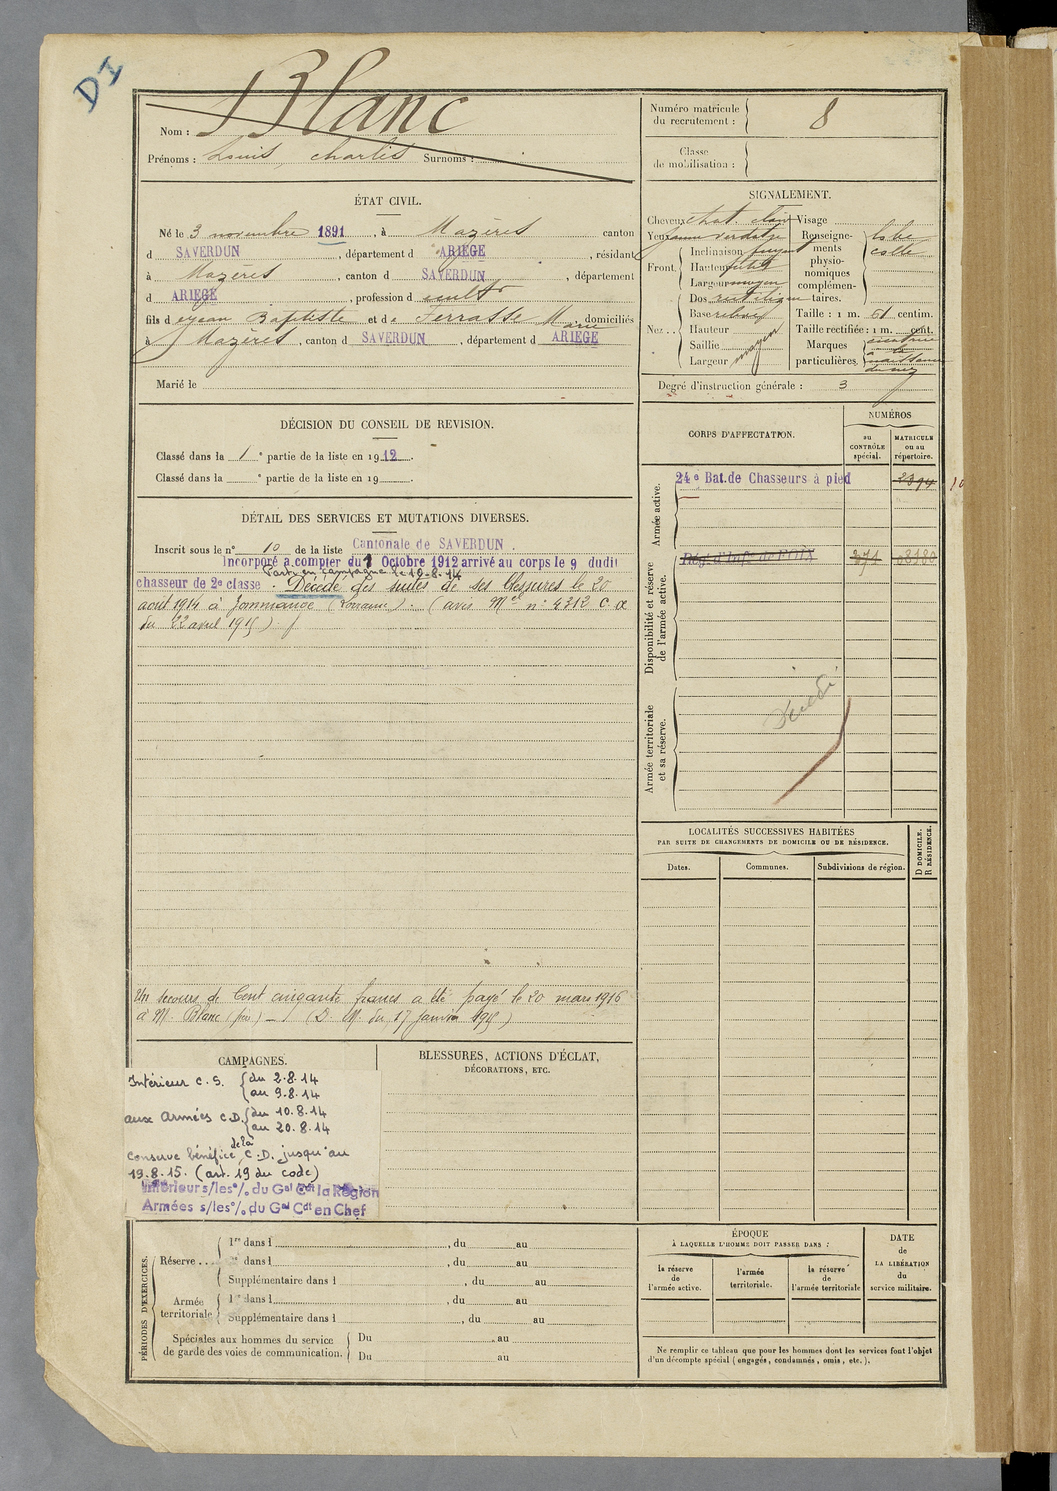 DI
Nom : Blanc
Prénoms : Louis, Charles Surnoms :
Numéro matricule du recrutement : 8
Classe de mobilisation :
ÉTAT CIVIL.
Né le 3 novembre 1891, à Mazères canton
d SAVERDUN, département d ARIEGE, résidant
à Mazères, canton d SAVERDUN, département
d ARIEGE, profession de cultr
fils d e Jean Baptiste et de Terrasse Marie, domiciliés
à Mazères, canton d SAVERDUN, département d ARIEGE
Marié le
SIGNALEMENT.
Cheveux chat. clair Visage
Yeux jaune verdatre
Front. Inclinaison fuyant
Hauteur petite
Largeur moyen
Nez .. Dos rectiligne
Base relevé
Hauteur
Saillie
Largeur moyen
Renseignements physionomiques complémentaires. lobe collé
Taille : 1 m. 61 centim.
Taille rectifiée : 1 m. cent.
Marques particulières. cicatrice à la naissance du nez
Degré d'instruction générale : 3
DÉCISION DU CONSEIL DE REVISION.
Classé dans la 1e partie de la liste en 1912.
Classé dans la e partie de la liste en 19
CORPS D'AFFECTATION.
NUMÉROS
au CONTRÔLE spécial.
MATRICULE ou au répertoire.
Armée active.
24e Bat. de Chasseurs à pied 2394
Disponibilité et réserve de l'armée active.
Rég. d'Infie de FOIX 08180
Armée territoriale et sa réserve.
Décédé
DÉTAIL DES SERVICES ET MUTATIONS DIVERSES.
Inscrit sous le n° 10 de la liste Cantonale de SAVERDUN.
Incorporé à compter du 1 Octobre 1912 arrivé au corps le 9 dudit
Parti en campagne le 10-8-14
chasseur de 2e classe. Décédé des suites de ses blessures le 20
août 1914 à Gommange (Lorraine). (avis Mel n° 4312 C. d
du 22 avril 1915)
Un secours de Cent cinquante francs a été payé le 20 mars 1916
à M. Blanc (père) — (D. M. du 17 janvier 1915)
LOCALITÉS SUCCESSIVES HABITÉES
PAR SUITE DE CHANGEMENTS DE DOMICILE OU DE RÉSIDENCE.
Dates.
Communes.
Subdivisions de région.
D DOMICILE.
R RÉSIDENCE.
CAMPAGNES.
Intérieur C.S. du 2.8.14
au 9.8.14
aux Armées C.D. du 10.8.14
au 20.8.14
Conserve bénéfice de la C.D. jusqu'au
19.8.15. (art. 19 du code)
Intérieur s/les o/. du Gal Cdt la Région
Armées s/les o/. du Gal Cdt en Chef
BLESSURES, ACTIONS D'ÉCLAT,
DÉCORATIONS, ETC.
PÉRIODES D'EXERCICES.
Réserve .... 1re dans l , du au
2e dans l , du au
Supplémentaire dans l , du au
Armée territoriale 1re dans l , du au
Supplémentaire dans l , du au
Spéciales aux hommes du service
de garde des voies de communication. Du au
Du au
ÉPOQUE
À LAQUELLE L'HOMME DOIT PASSER DANS :
la réserve de l'armée active.
l'armée territoriale.
la réserve de l'armée territoriale
DATE de LA LIBÉRATION du service militaire.
Ne remplir ce tableau que pour les hommes dont les services font l'objet
d'un décompte spécial (engagés, condamnés, omis, etc.).